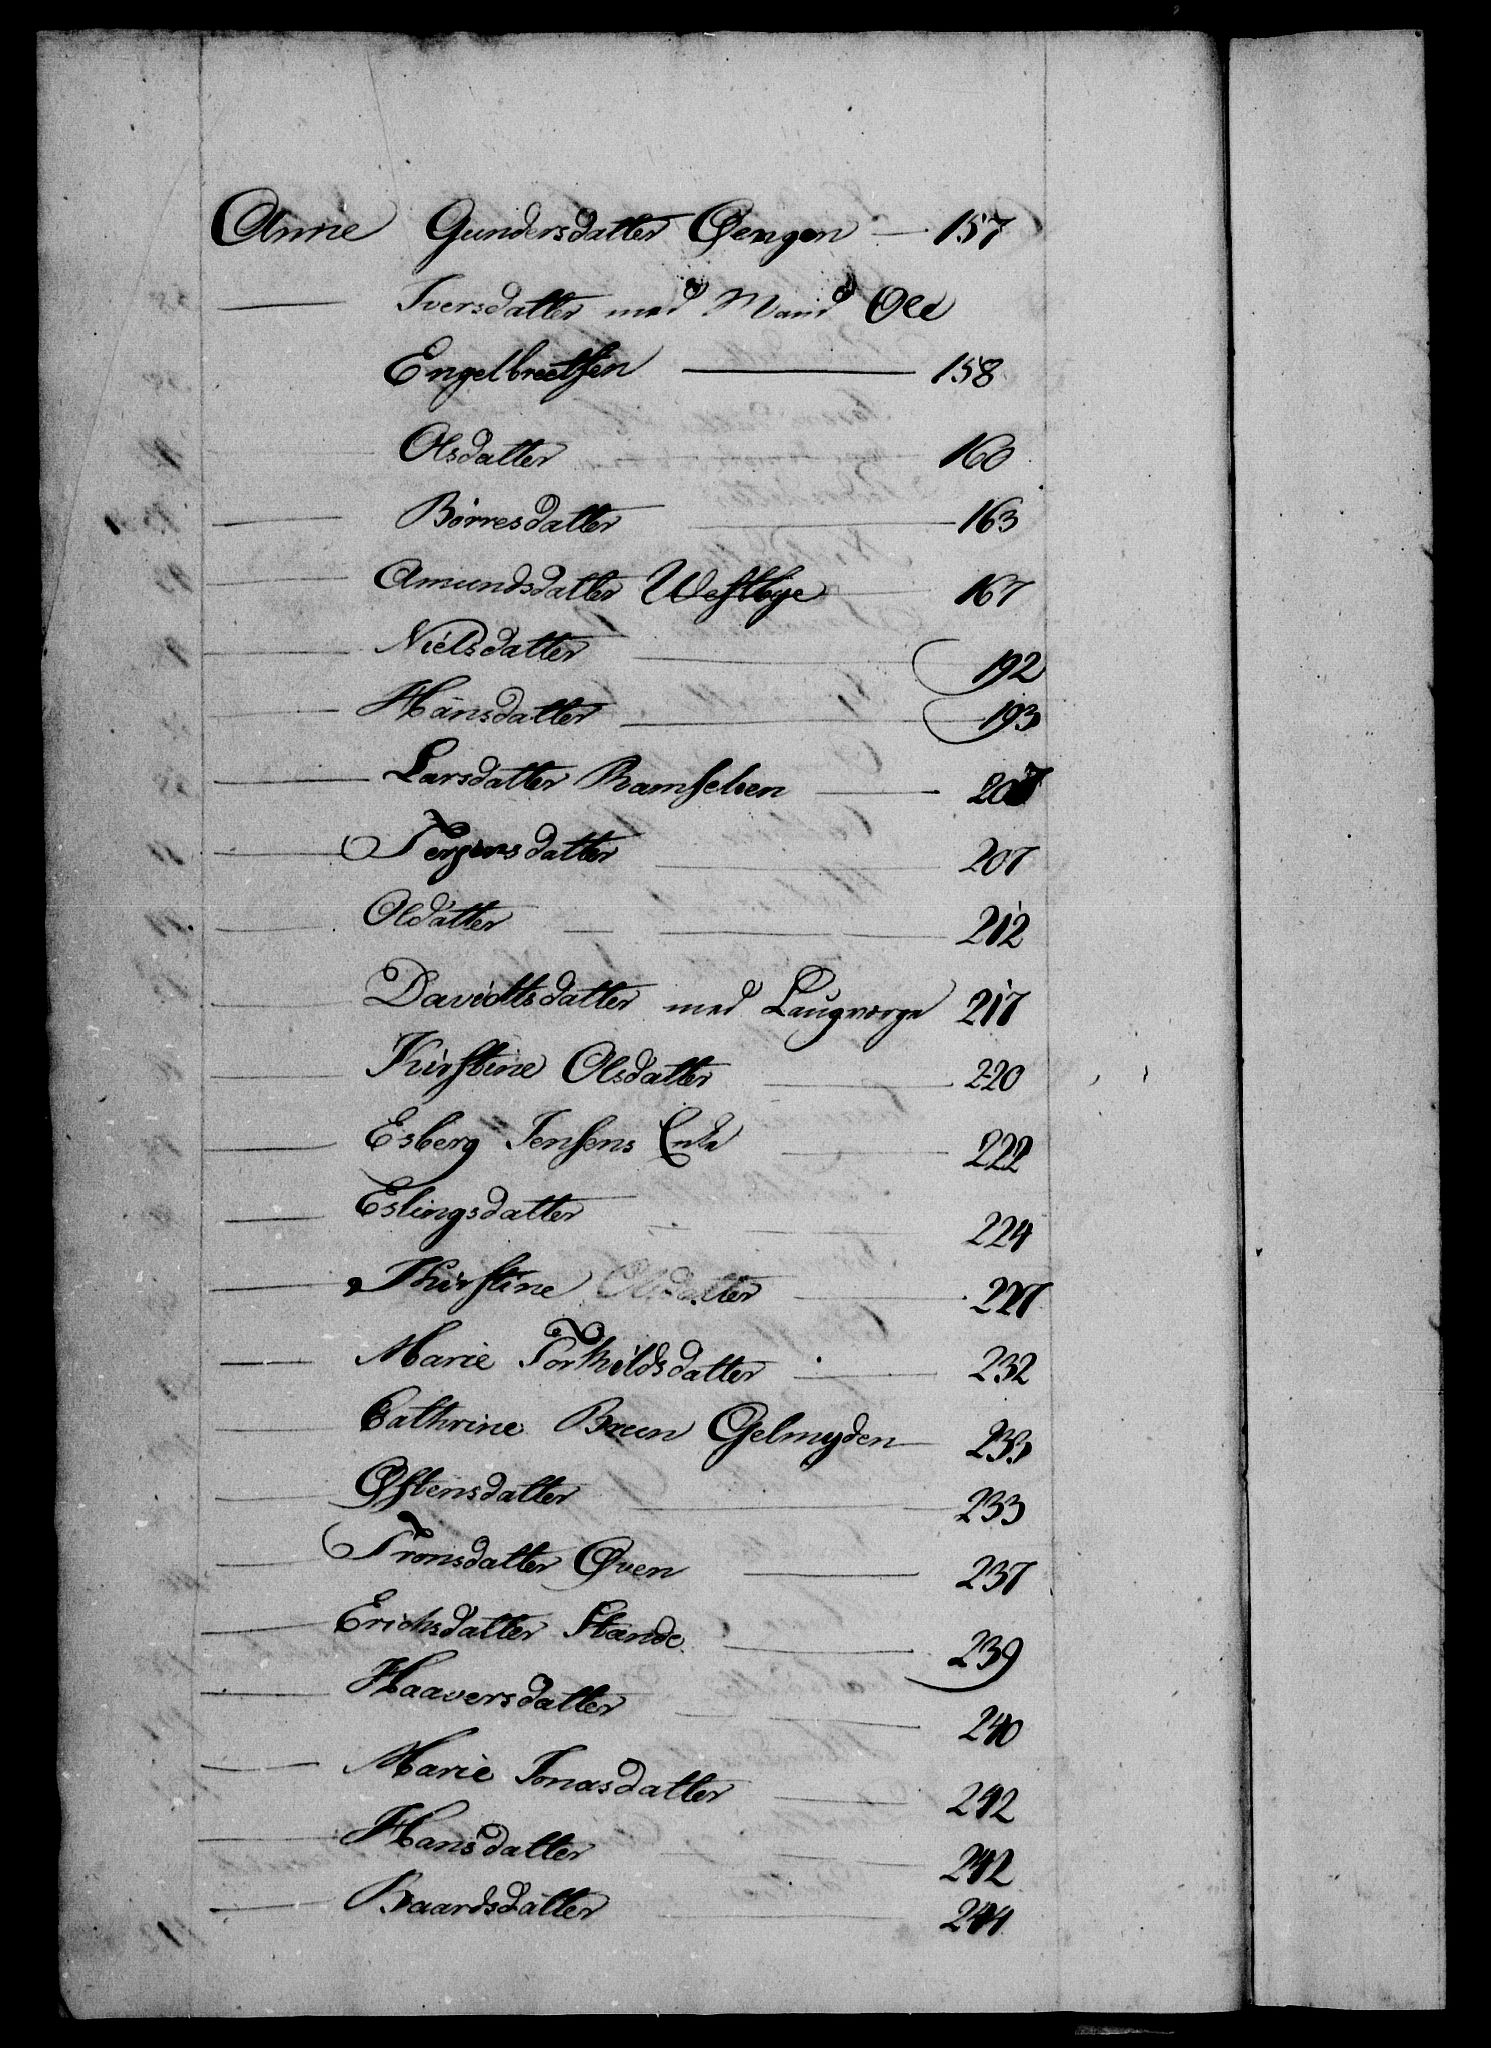 Anne Gundersdatter Øengen — 157
— Iversdatter med Mand Ole
Engelbrectsen — 158
— Olsdatter 160
— Børresdatter — 163
— Amundsdatter Westbye — 167
— Nielsdatter — 192
— Hansdatter — 193
— Larsdatter Ramselven — 207
— Jørgensdatter — 207
— Oldatter — 212
— Davidtsdatter med Laugverge 217
— Kirstine Olsdatter — 220
— Esberg Jensens Enke — 222
— Eslingsdatter — 224
— Kirstine Olsdatter — 227
— Marie Torkildsdatter — 232
— Cathrine Bruun Gelmyden — 233
— Østensdatter — 233
— Tronsdatter Øven — 237
— Erichsdatter Stande — 239
— Haaversdatter — 240
— Marie Jonasdatter — 242
— Hansdatter — 242
— Baardsdatter — 244